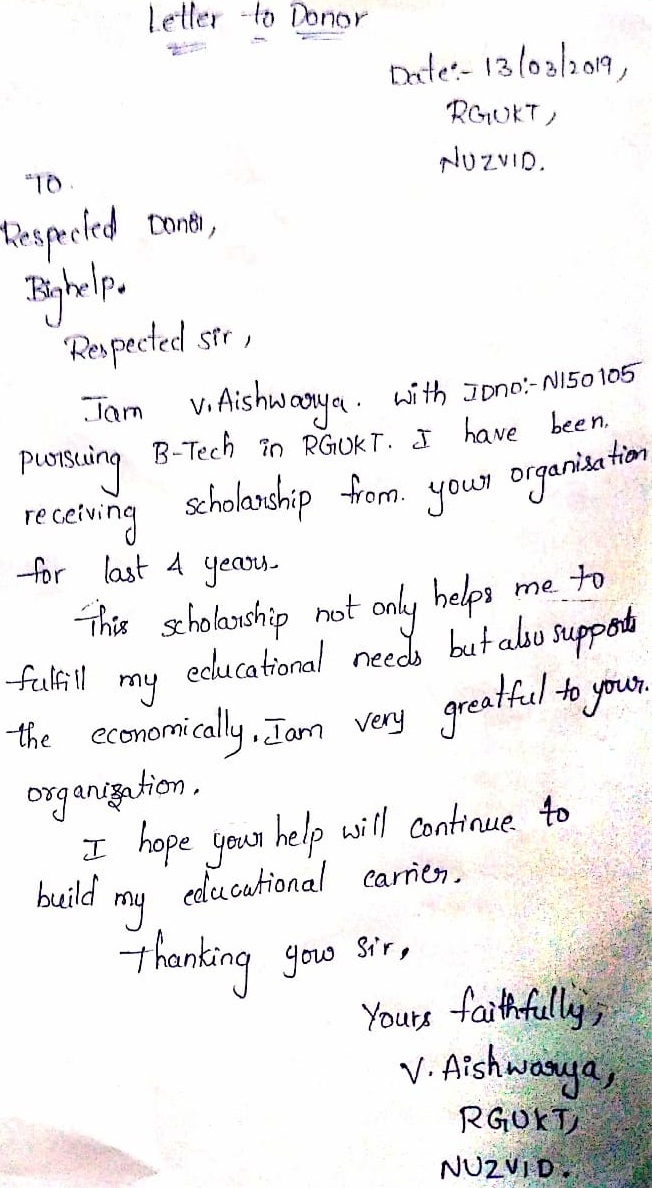 Letter to Donor
Date:- 13/03/2019,
RGUKT,
NUZVID.
TO.
Respected Donor,
Bighelp.
Respected sir,
Iam V. Aishwarya. with IDno:- N150105
pursuing B-Tech in RGUKT. I have been.
receiving scholarship from. your organisation
for last 4 years.
This scholarship not only helps me to
fulfill my educational needs but also supports
the economically. Iam very greatful to your.
organization.
I hope your help will continue to
build my educational carrier.
Thanking you sir,
Yours faithfully,
V. Aishwarya,
RGUKT,
NUZVID.